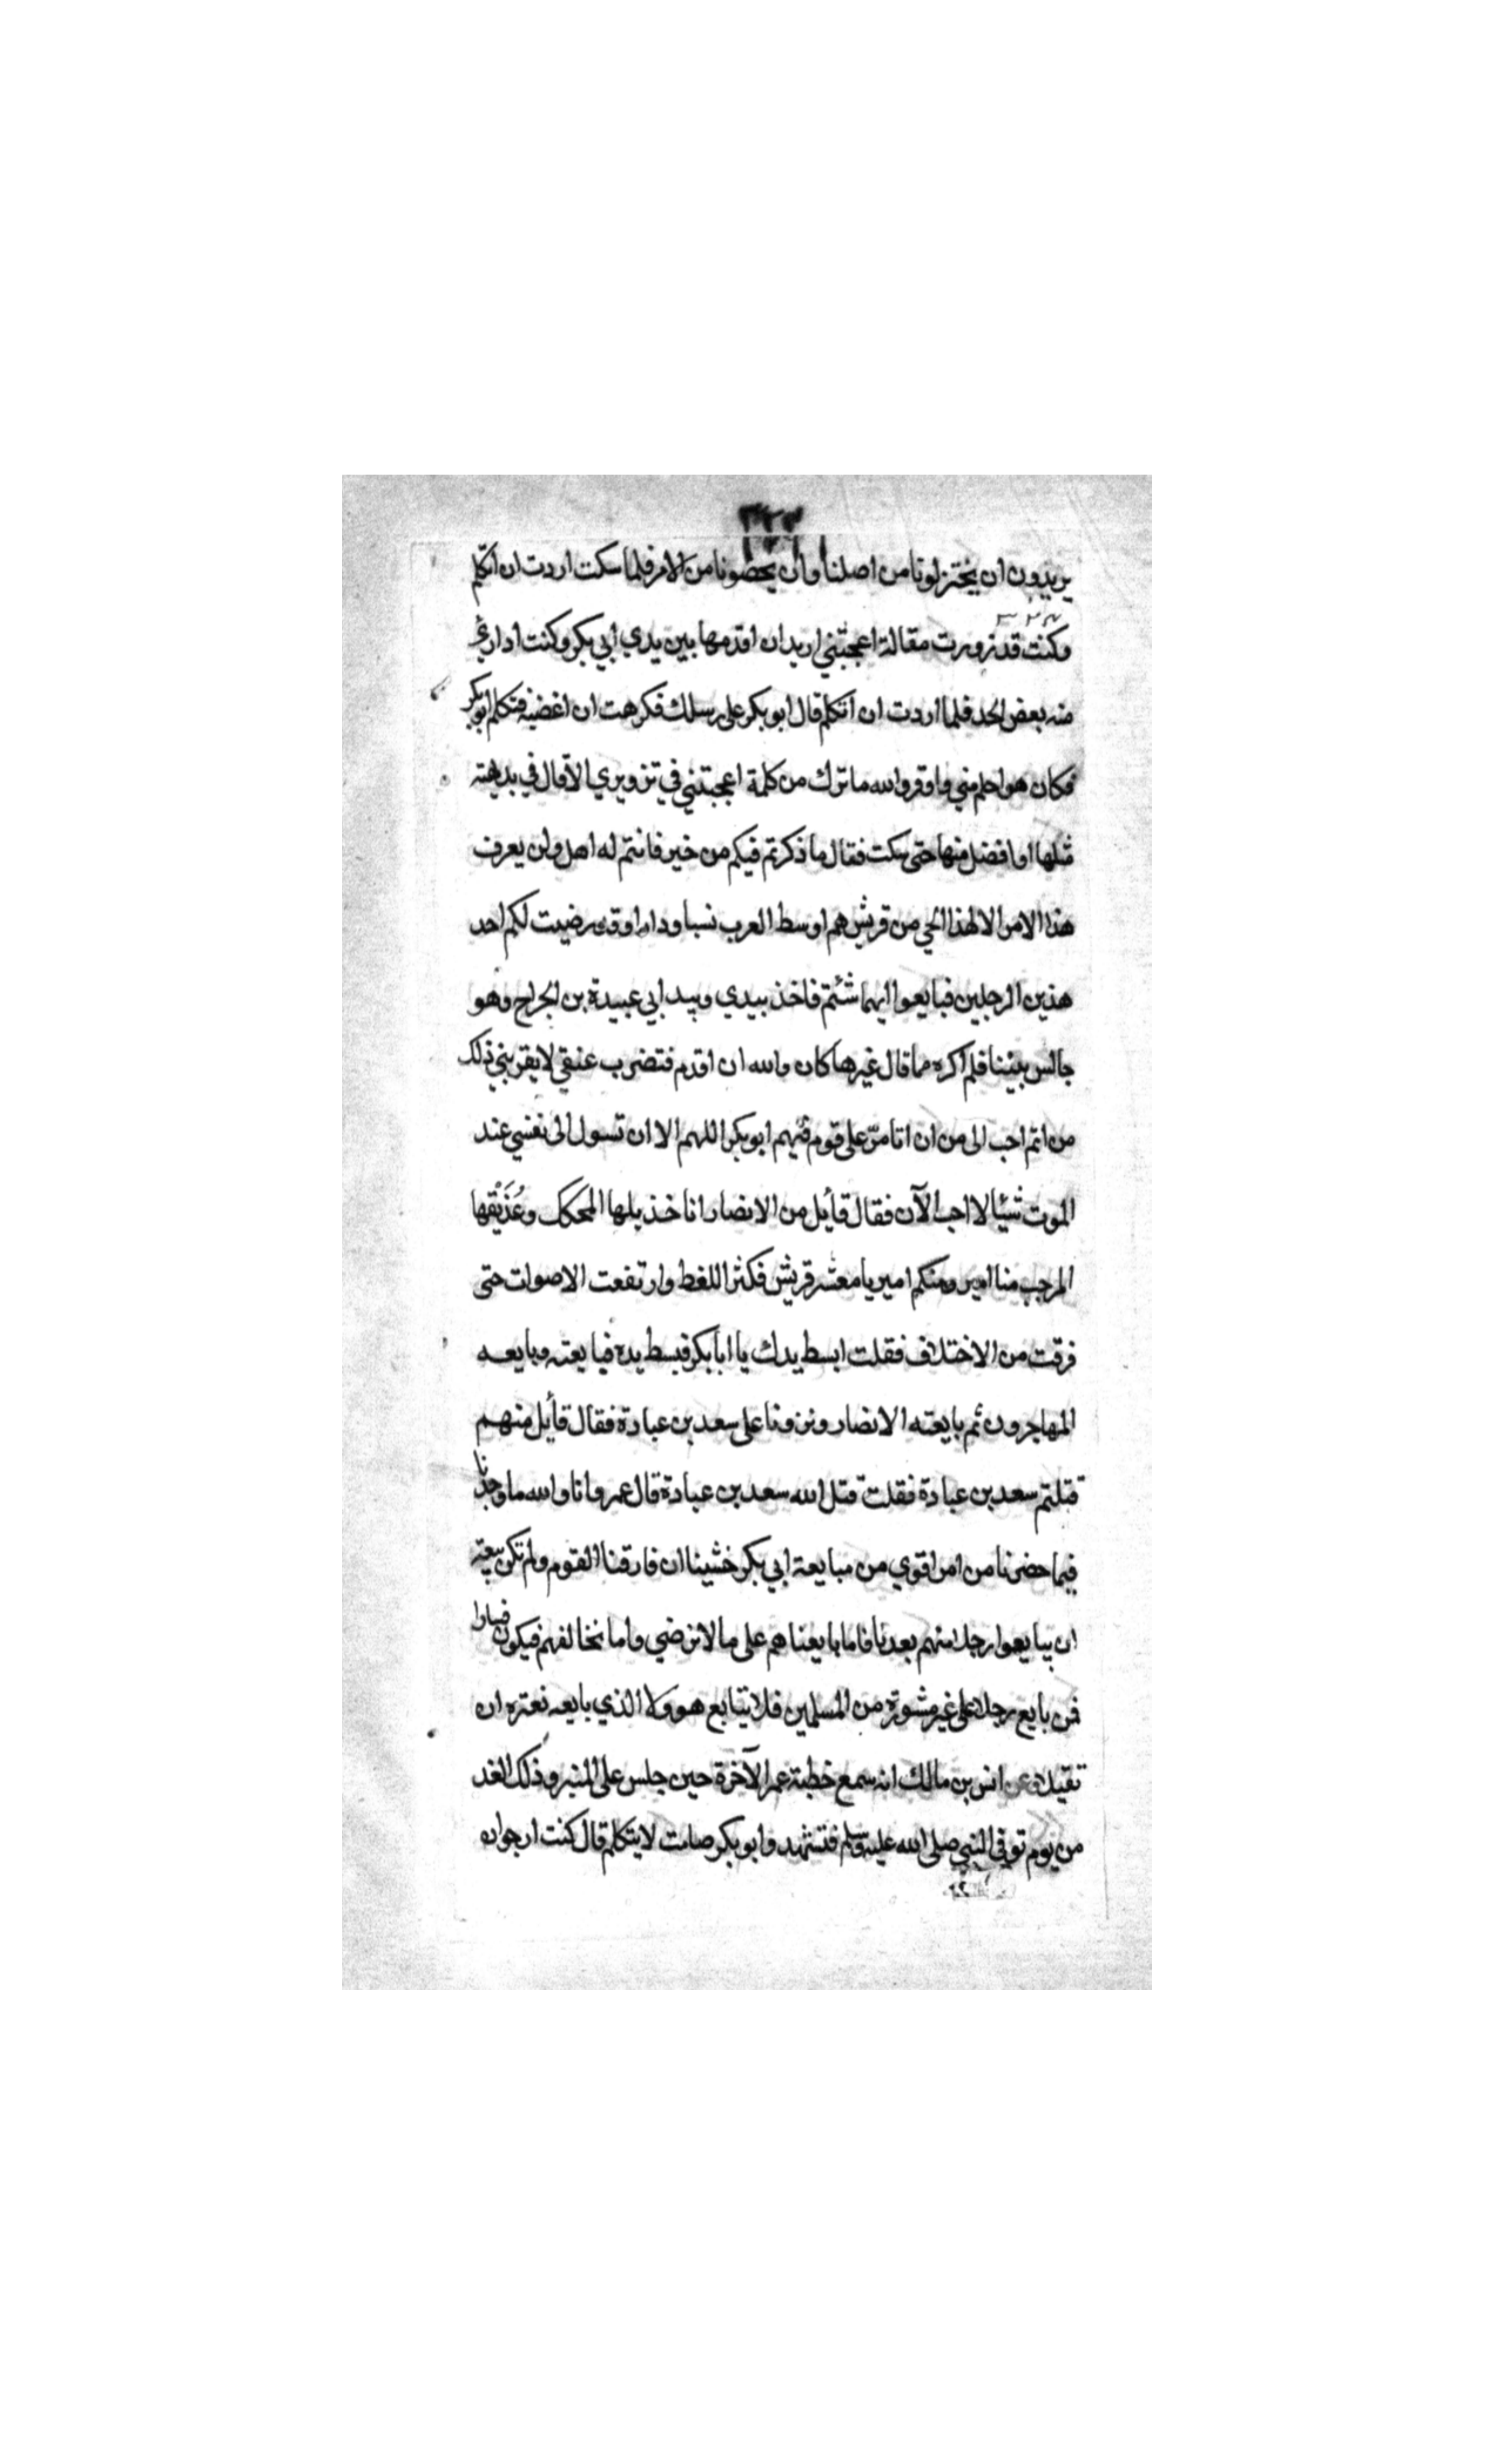 ٣٢٣
يريدون ان يختزلونا من اصلنا وان يحضونا من الامر فلما سكت اردت ان اتكلم
وكنت قد زورت مقالة اعجبتني اريد ان اقدمها بين يدي ابي بكر وكنت اداري
منه بعض الحد فلما اردت ان اتكلم قال ابو بكر على رسلك فكرهت ان اغضبه فتكلم ابو بكر
فكان هو احلم مني واوقر والله ما ترك من كلمة اعجبتني في تزويري الا قال في بديهته
مثلها او افضل منها حتى سكت فقال ما ذكرتم فيكم من خير فانتم له اهل ولن يعرف
هذا الامر الا لهذا الحي من قريش هم اوسط العرب نسبا ودارا وقد رضيت لكم احد
هذين الرجلين فبايعوا ايهما شئتم فاخذ بيدي وبيد ابي عبيدة بن الجراح وهو
جالس بيننا فلم اكره مما قال غيرها كان والله ان اقدم فتضرب عنقي لا يقربني ذلك
من اثم احب الى من ان اتامر على قوم فيهم ابو بكر اللهم الا ان تسول الى نفسي عند
الموت شيئا لا اجد الآن فقال قائل من الانصار انا خذيلها المحكك وعُذَيْقها
المرجب منا امير ومنكم امير يا معشر قريش فكثر اللغط وارتفعت الاصوات حتى
فرقت من الاختلاف فقلت ابسط يدك يا ابا بكر فبسط يده فبايعته وبايعه
المهاجرون ثم بايعته الانصار ونزونا على سعد بن عبادة فقال قائل منهم
قتلتم سعد بن عبادة فقلت قتل الله سعد بن عبادة قال عمر وانا والله ما وجدنا
فيما حضرنا من امر اقوي من مبايعة ابي بكر خشينا ان فارقنا القوم ولم تكن بيعة
ان يبايعوا رجلا منهم بعدنا فاما بايعناهم على ما لا نرضي واما نخالفهم فيكون فسادا
فمن بايع رجلا على غير مشورة من المسلمين فلا يتابع هو ولا الذي بايعه تغره ان
تقيلا عن انس بن مالك انه سمع خطبة عمر الآخرة حين جلس على المنبر وذلك الغد
من يوم توفي النبي صلى الله عليه وسلم فتشهد وابو بكر صامت لا يتكلم قال كنت ارجو ان